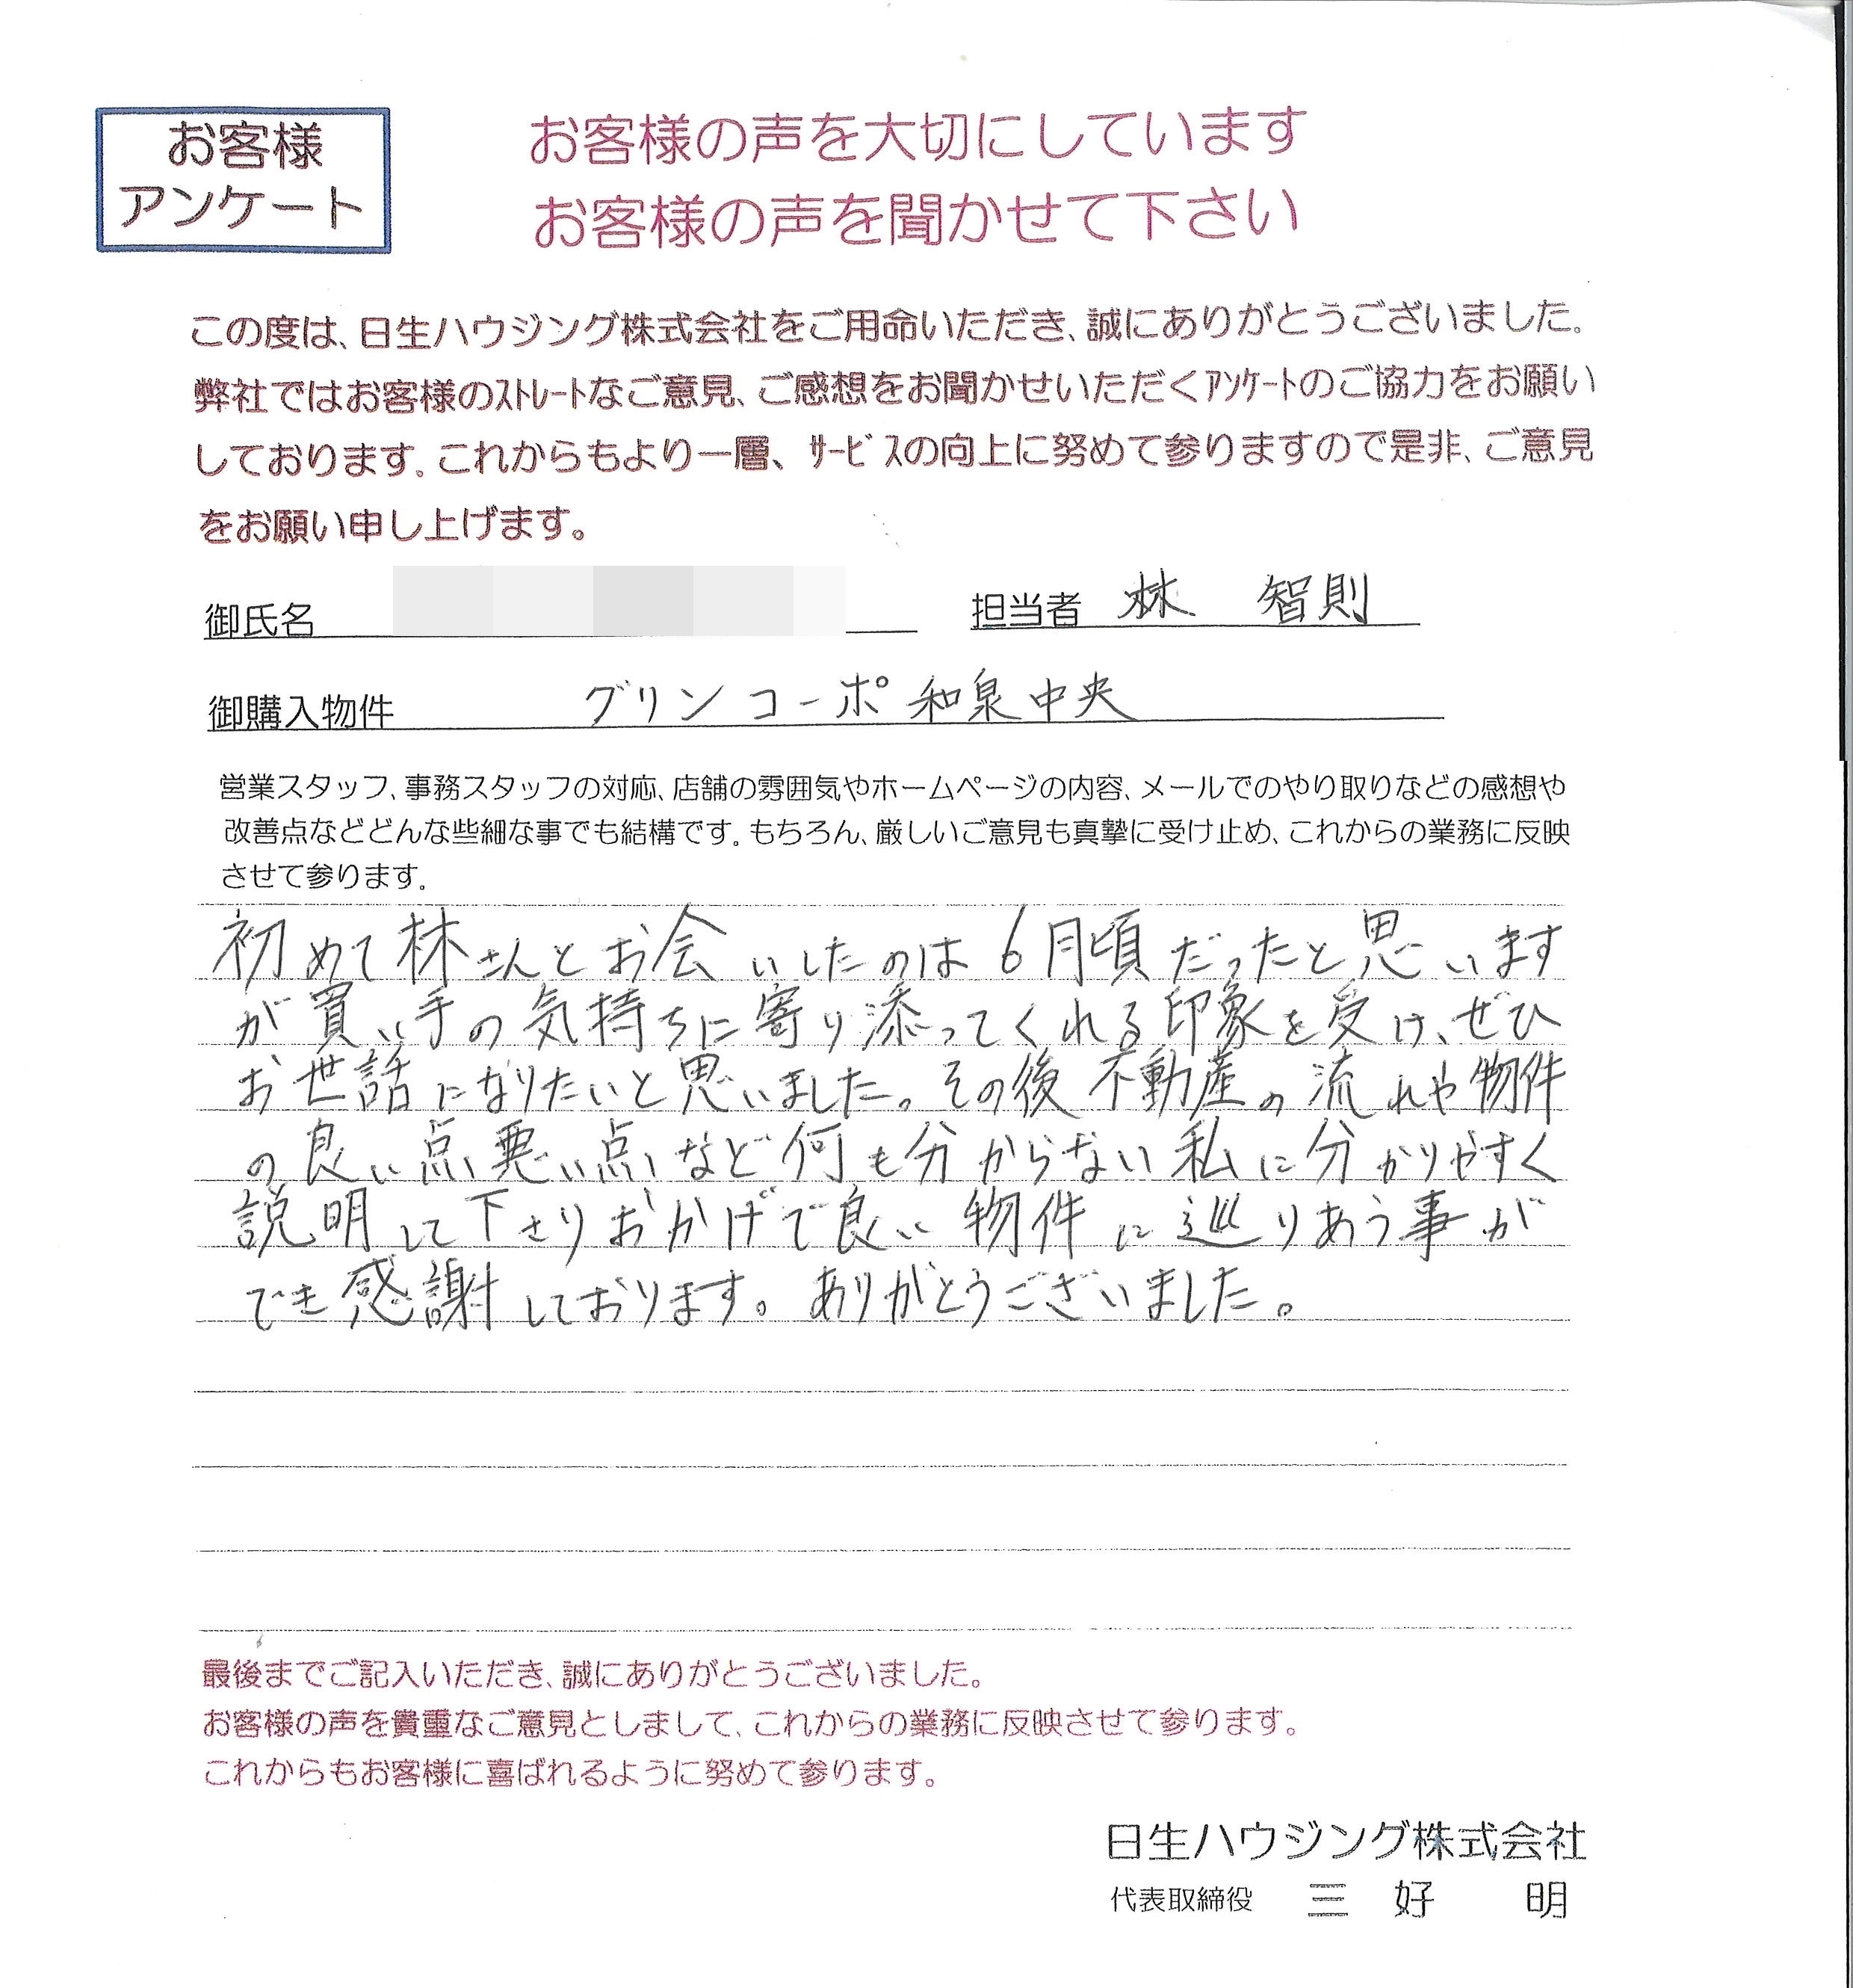 お客様
アンケート
お客様の声を大切にしています
お客様の声を聞かせて下さい
この度は、日生ハウジング株式会社をご用命いただき、誠にありがとうございました。
弊社ではお客様のｽﾄﾚｰﾄなご意見、ご感想をお聞かせいただくｱﾝｹｰﾄのご協力をお願い
しております。これからもより一層、ｻｰﾋﾞｽの向上に努めて参りますので是非、ご意見
をお願い申し上げます。
御氏名
担当者 林 智則
御購入物件 グリンコーポ和泉中央
営業スタッフ、事務スタッフの対応、店舗の雰囲気やホームページの内容、メールでのやり取りなどの感想や
改善点などどんな些細な事でも結構です。もちろん、厳しいご意見も真摯に受け止め、これからの業務に反映
させて参ります。
初めて林さんとお会いしたのは6月頃だったと思います
が買い手の気持ちに寄り添ってくれる印象を受け、ぜひ
お世話になりたいと思いました。その後不動産の流れや物件
の良い点、悪い点、など何も分からない私に分かりやすく
説明して下さりおかげで良い物件に巡りあう事が
でき感謝しております。ありがとうございました。
最後までご記入いただき、誠にありがとうございました。
お客様の声を貴重なご意見としまして、これからの業務に反映させて参ります。
これからもお客様に喜ばれるように努めて参ります。
日生ハウジング株式会社
代表取締役 三 好 明